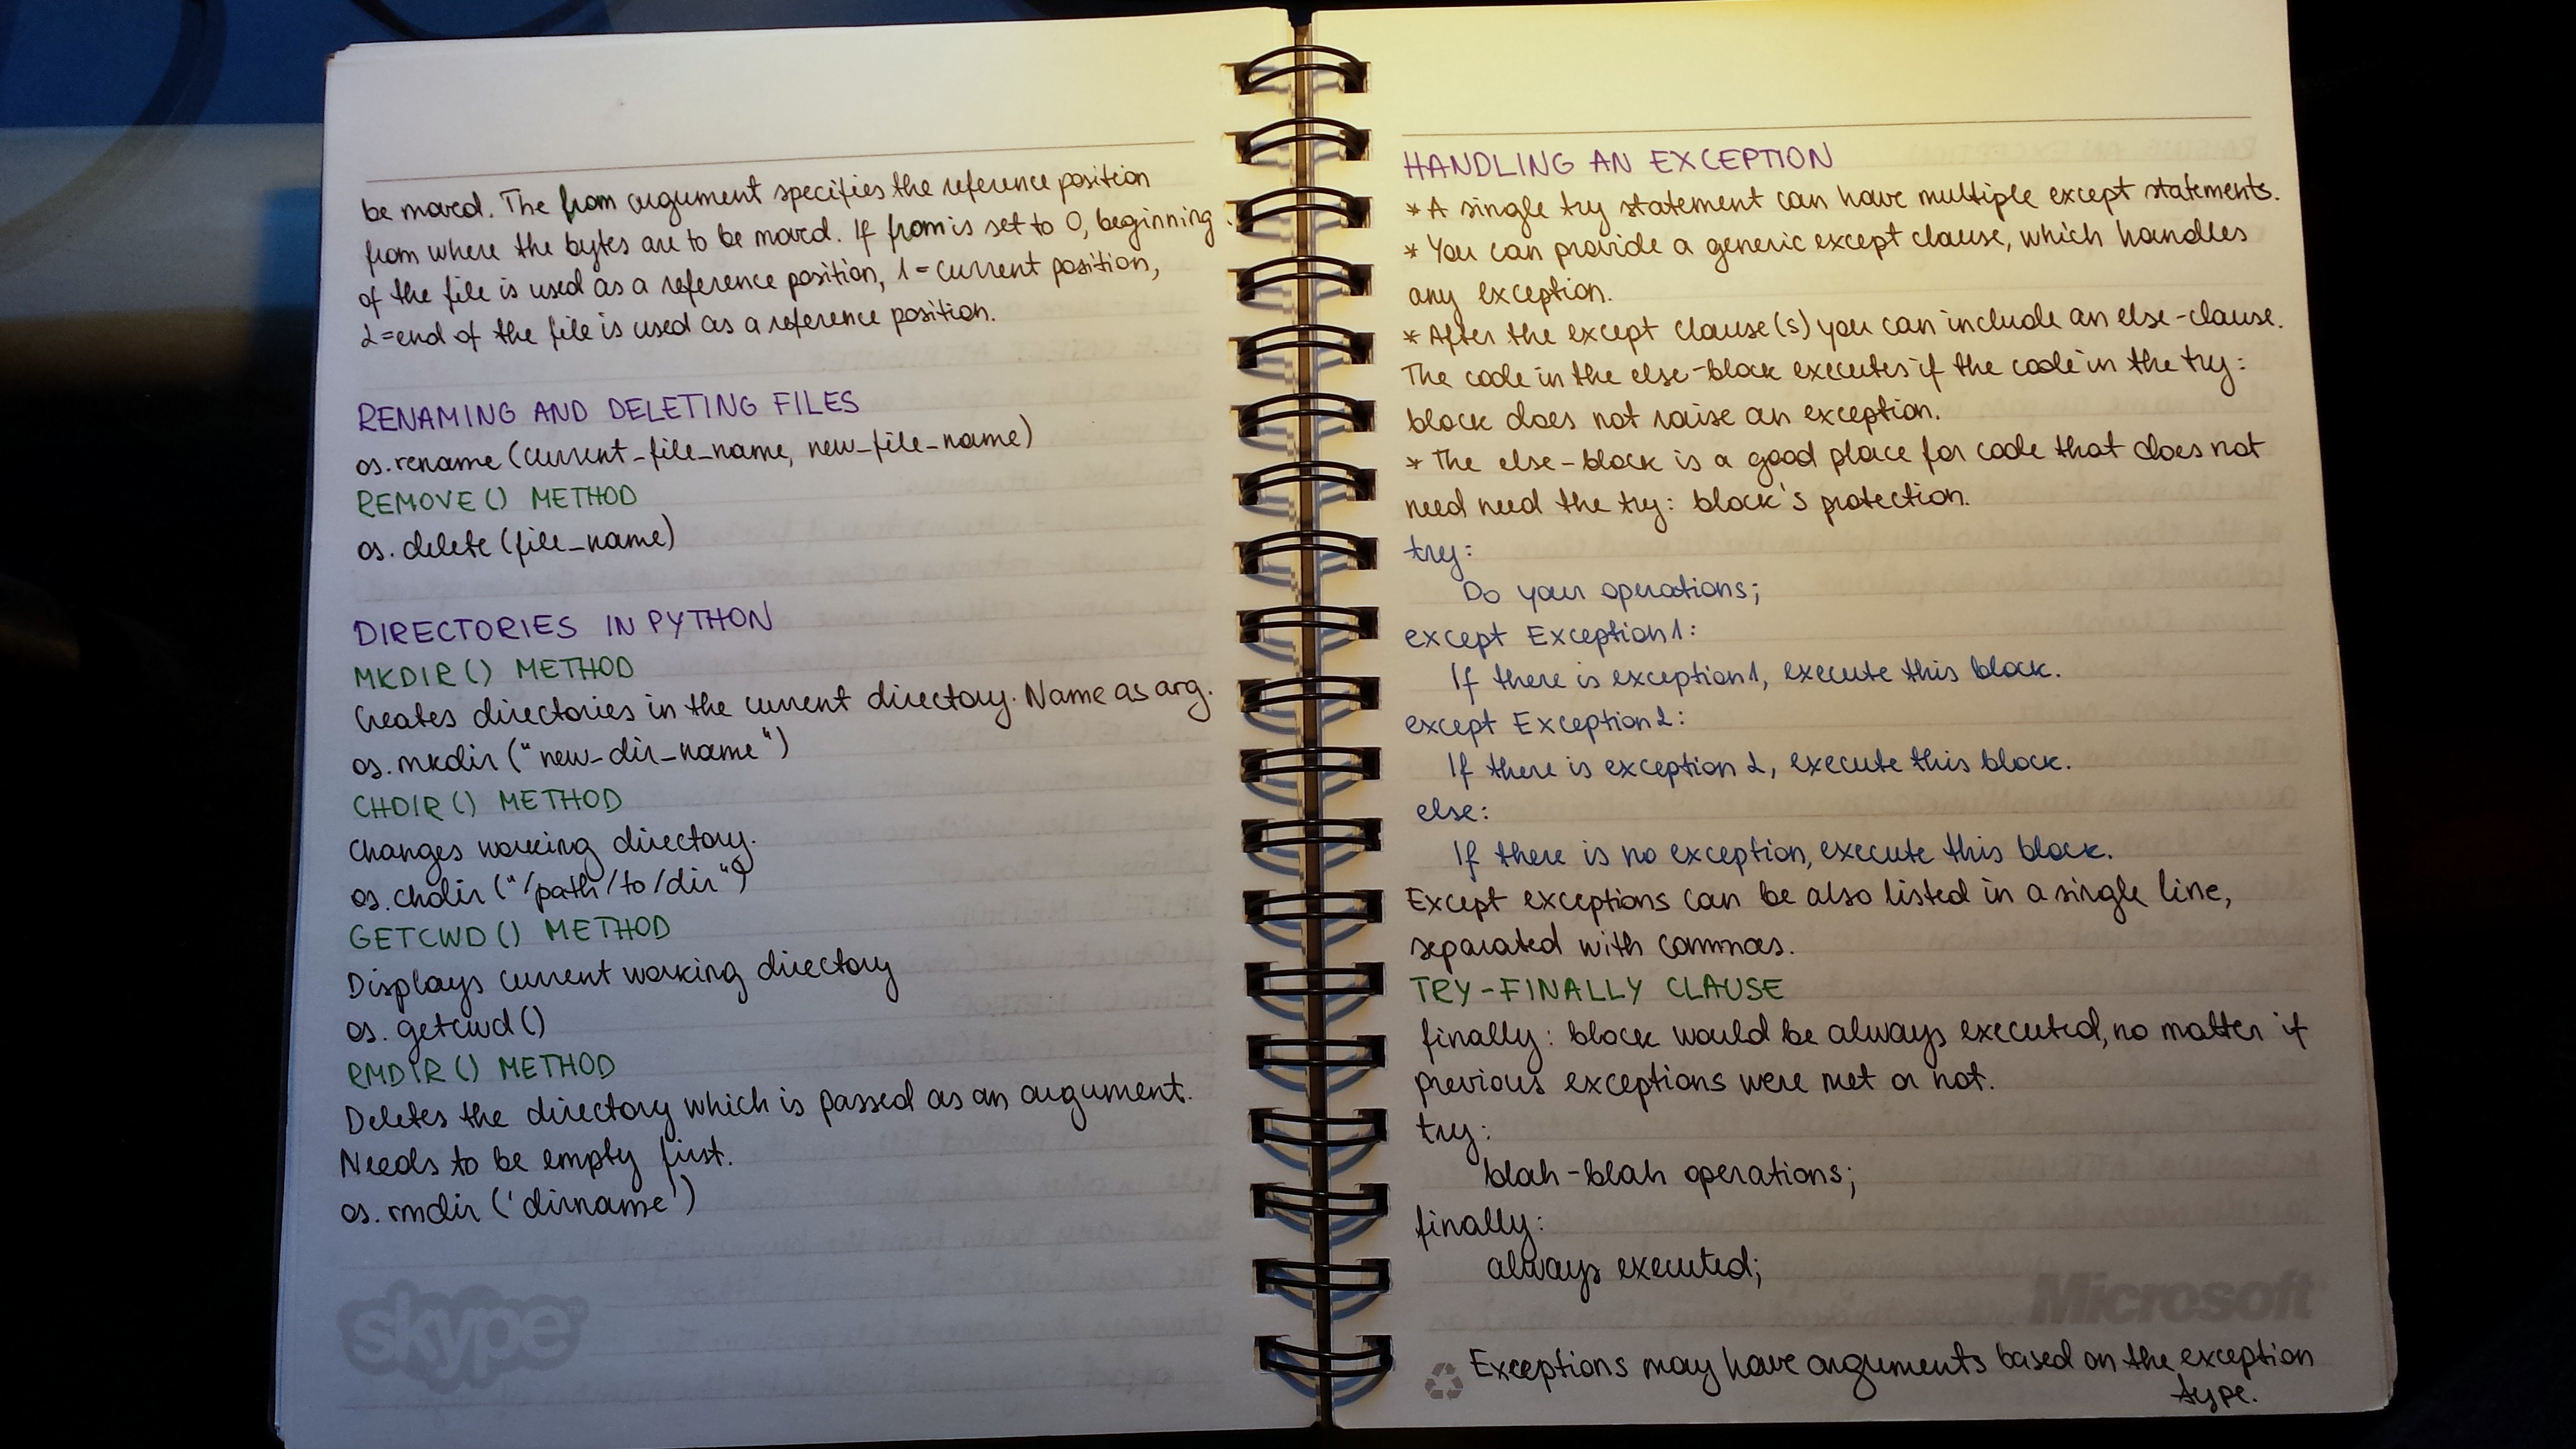 be moved. The from argument specifies the reference position
from where the bytes are to be moved. If from is set to 0, beginning
of the file is used as a reference position, 1=current position,
2=end of the file is used as a reference position.
RENAMING AND DELETING FILES
os.rename (current_file_name, new_file_name)
REMOVE() METHOD
os.delete (file_name)
DIRECTORIES IN PYTHON
MKDIR() METHOD
Creates directories in the current directory. Name as arg.
os.mkdir ("new_dir_name")
CHDIR() METHOD
Changes working directory.
os.chdir ("/path/to/dir")
GETCWD() METHOD
Displays current working directory
os.getcwd()
RMDIR() METHOD
Deletes the directory which is passed as an argument.
Needs to be empty first.
os.rmdir ('dirname')
skype™
HANDLING AN EXCEPTION
* A single try statement can have multiple except statements.
* You can provide a generic except clause, which handles
any exception.
* After the except clause(s) you can include an else-clause.
The code in the else-block executes if the code in the try:
block does not raise an exception.
* The else-block is a good place for code that does not
need need the try: block's protection.
try:
Do your operations;
except Exception1:
If there is exception1, execute this block.
except Exception2:
If there is exception 2, execute this block.
else:
If there is no exception, execute this block.
Except exceptions can be also listed in a single line,
separated with commas.
TRY-FINALLY CLAUSE
finally: block would be always executed, no matter if
previous exceptions were met or not.
try:
blah-blah operations;
finally:
always executed;
Microsoft
Exceptions may have arguments based on the exception
type.